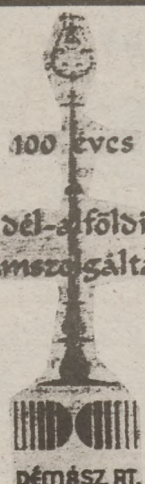 100 éves
dél-alföldi
amszolgálta
DÉMÁSZ RT.